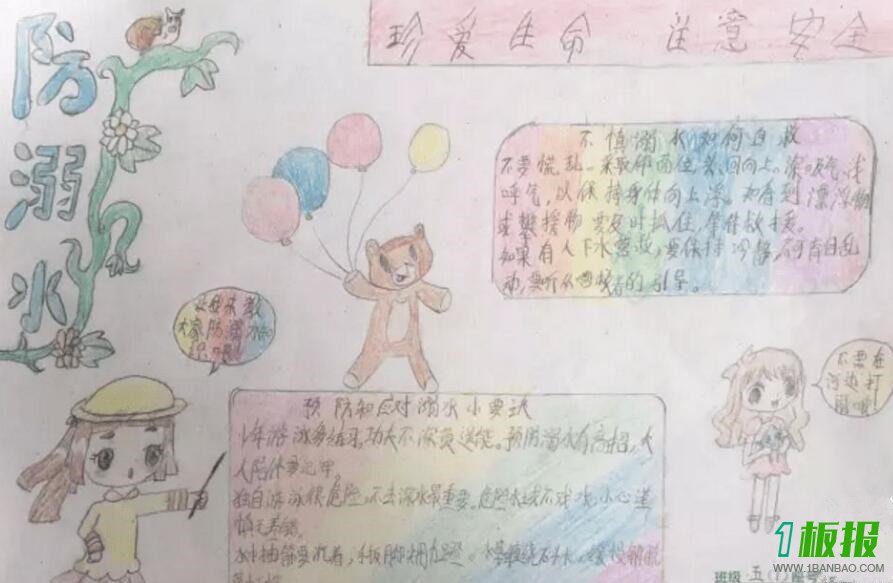 防溺水
珍爱生命 注意安全
不慎溺水如何自救
不要慌乱。采取仰面位,头向上。深吸气,浅
呼气,以保持身体向上浮。如看到漂浮物
或攀援物要及时抓住,等待救援。
如果有人下水营救,要保持冷静,不可盲目乱
动,要听从营救者的引导。
让我来教
大家防溺水知
识
不要在
河边打
闹哦
预防和应对溺水小要诀
少年游泳多练习,功夫不深莫逞能。预防溺水有高招,大
人陪伴要记牢。
独自游泳很危险,不去深水最重要。危险水域不戏 小心谨
慎
水中抽筋要沉着,
班级 五(1)
1板报
WWW.1BANBAO.COM